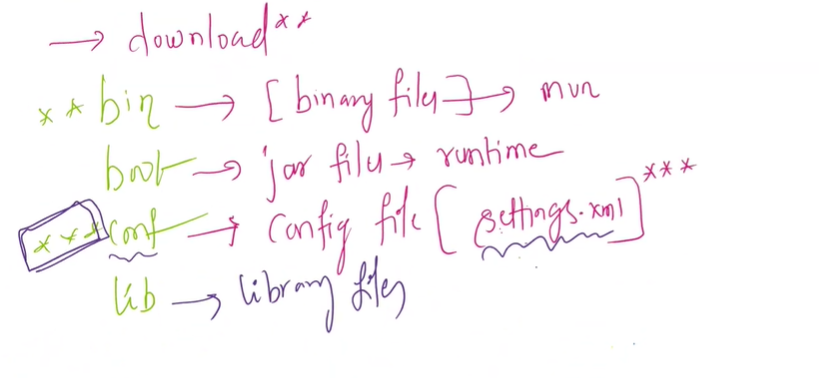 → download**
** bin → [binary files] → mvn
boot → jar files → runtime
*** conf → config file [settings.xml]***
lib → library files